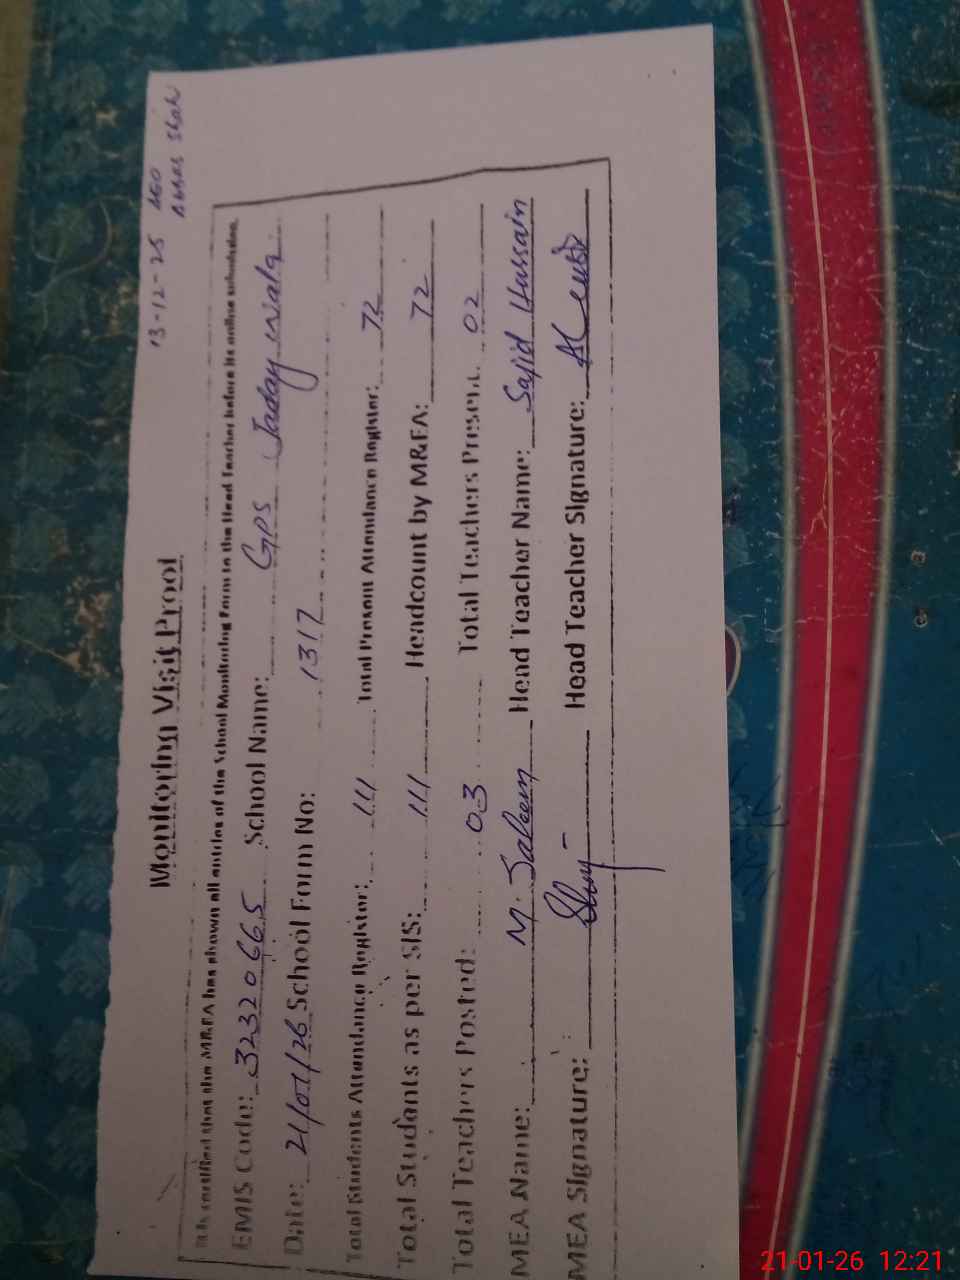 13-12-25 AEO
Abbas Shah
Monitoring Visit Proof
It is certified that the M&EA has shown all entries of the School Monitoring Form to the Head Teacher before its online submission.
EMIS Code: 32320665 School Name: GPS Jaday wala
Date: 21/01/26 School Form No: 1317
Total Students Attendance Register: 111 Total Present Attendance Register: 72
Total Students as per SIS: 111 Headcount by M&EA: 72
Total Teachers Posted: 03 Total Teachers Present: 02
MEA Name: M. Saleem Head Teacher Name: Sajid Hussain
MEA Signature: Head Teacher Signature:
21-01-26 12:21